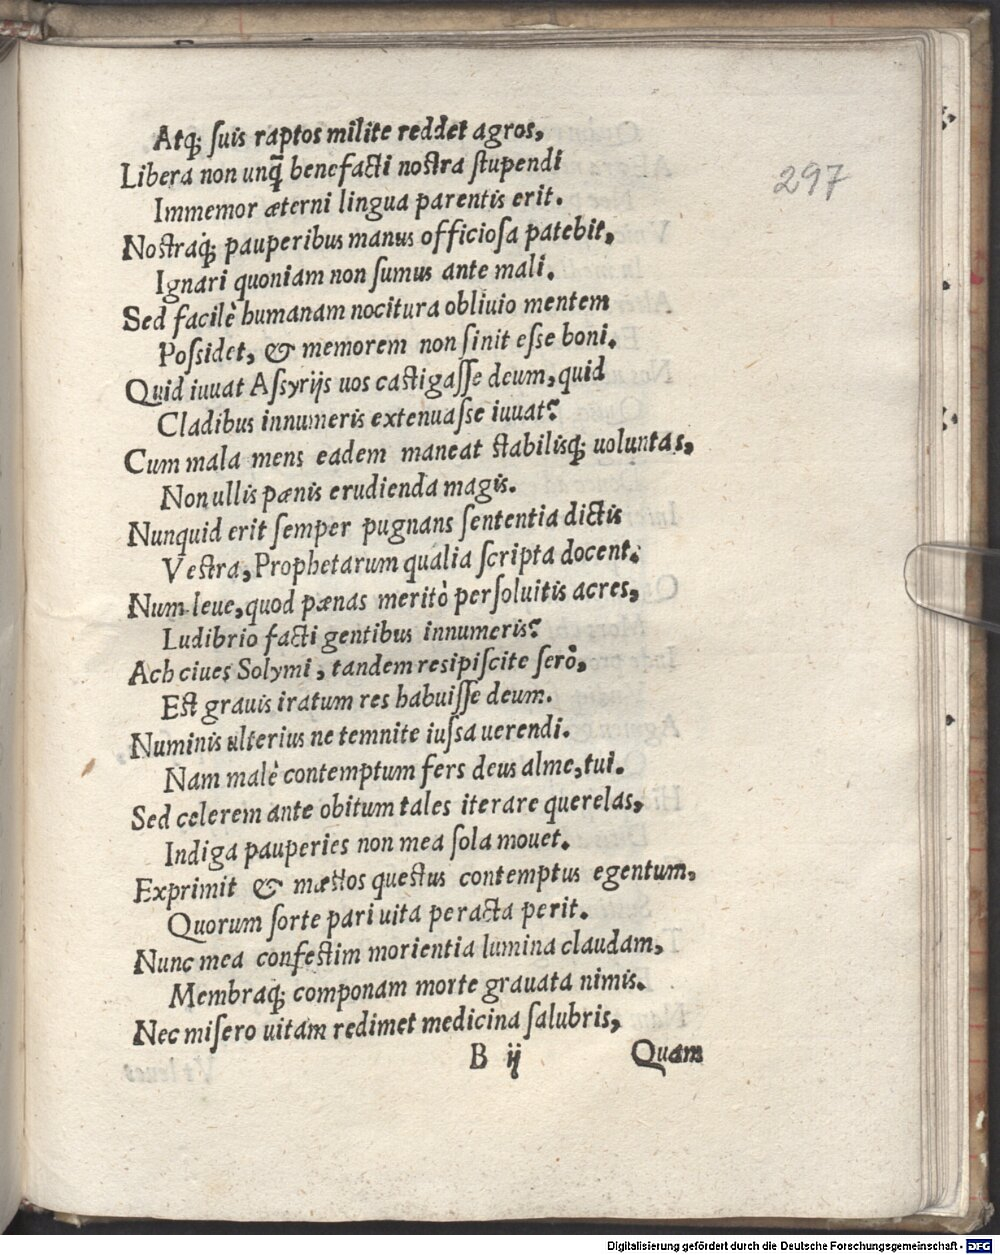 Atq; suis raptos milite reddet agros,
Libera non unq̃ benefacti nostra stupendi
Immemor æterni lingua parentis erit.
Nostraq; pauperibus manus officiosa patebit,
Ignari quoniam non sumus ante mali.
Sed facilè humanam nocitura obliuio mentem
Possidet, & memorem non sinit esse boni.
Quid iuuat Assyrijs uos castigasse deum, quid
Cladibus innumeris extenuasse iuuat?
Cum mala mens eadem maneat stabilisq; uoluntas,
Non ullis pænis erudienda magis.
Nunquid erit semper pugnans sententia dictis
Vestra, Prophetarum qualia scripta docent.
Num leue, quod pænas meritò persoluitis acres,
Ludibrio facti gentibus innumeris?
Ach ciues Solymi, tandem resipiscite serò,
Est grauis iratum res habuisse deum.
Numinis ulterius ne temnite iussa uerendi.
Nam malè contemptum fers deus alme, tui.
Sed celerem ante obitum tales iterare querelas,
Indiga pauperies non mea sola mouet.
Exprimit & mæstos questus contemptus egentum,
Quorum sorte pari uita peracta perit.
Nunc mea confestim morientia lumina claudam,
Membraq; componam morte grauata nimis.
Nec misero uitam redimet medicina salubris,
B ij Quam
297
Digitalisierung gefördert durch die Deutsche Forschungsgemeinschaft - DFG